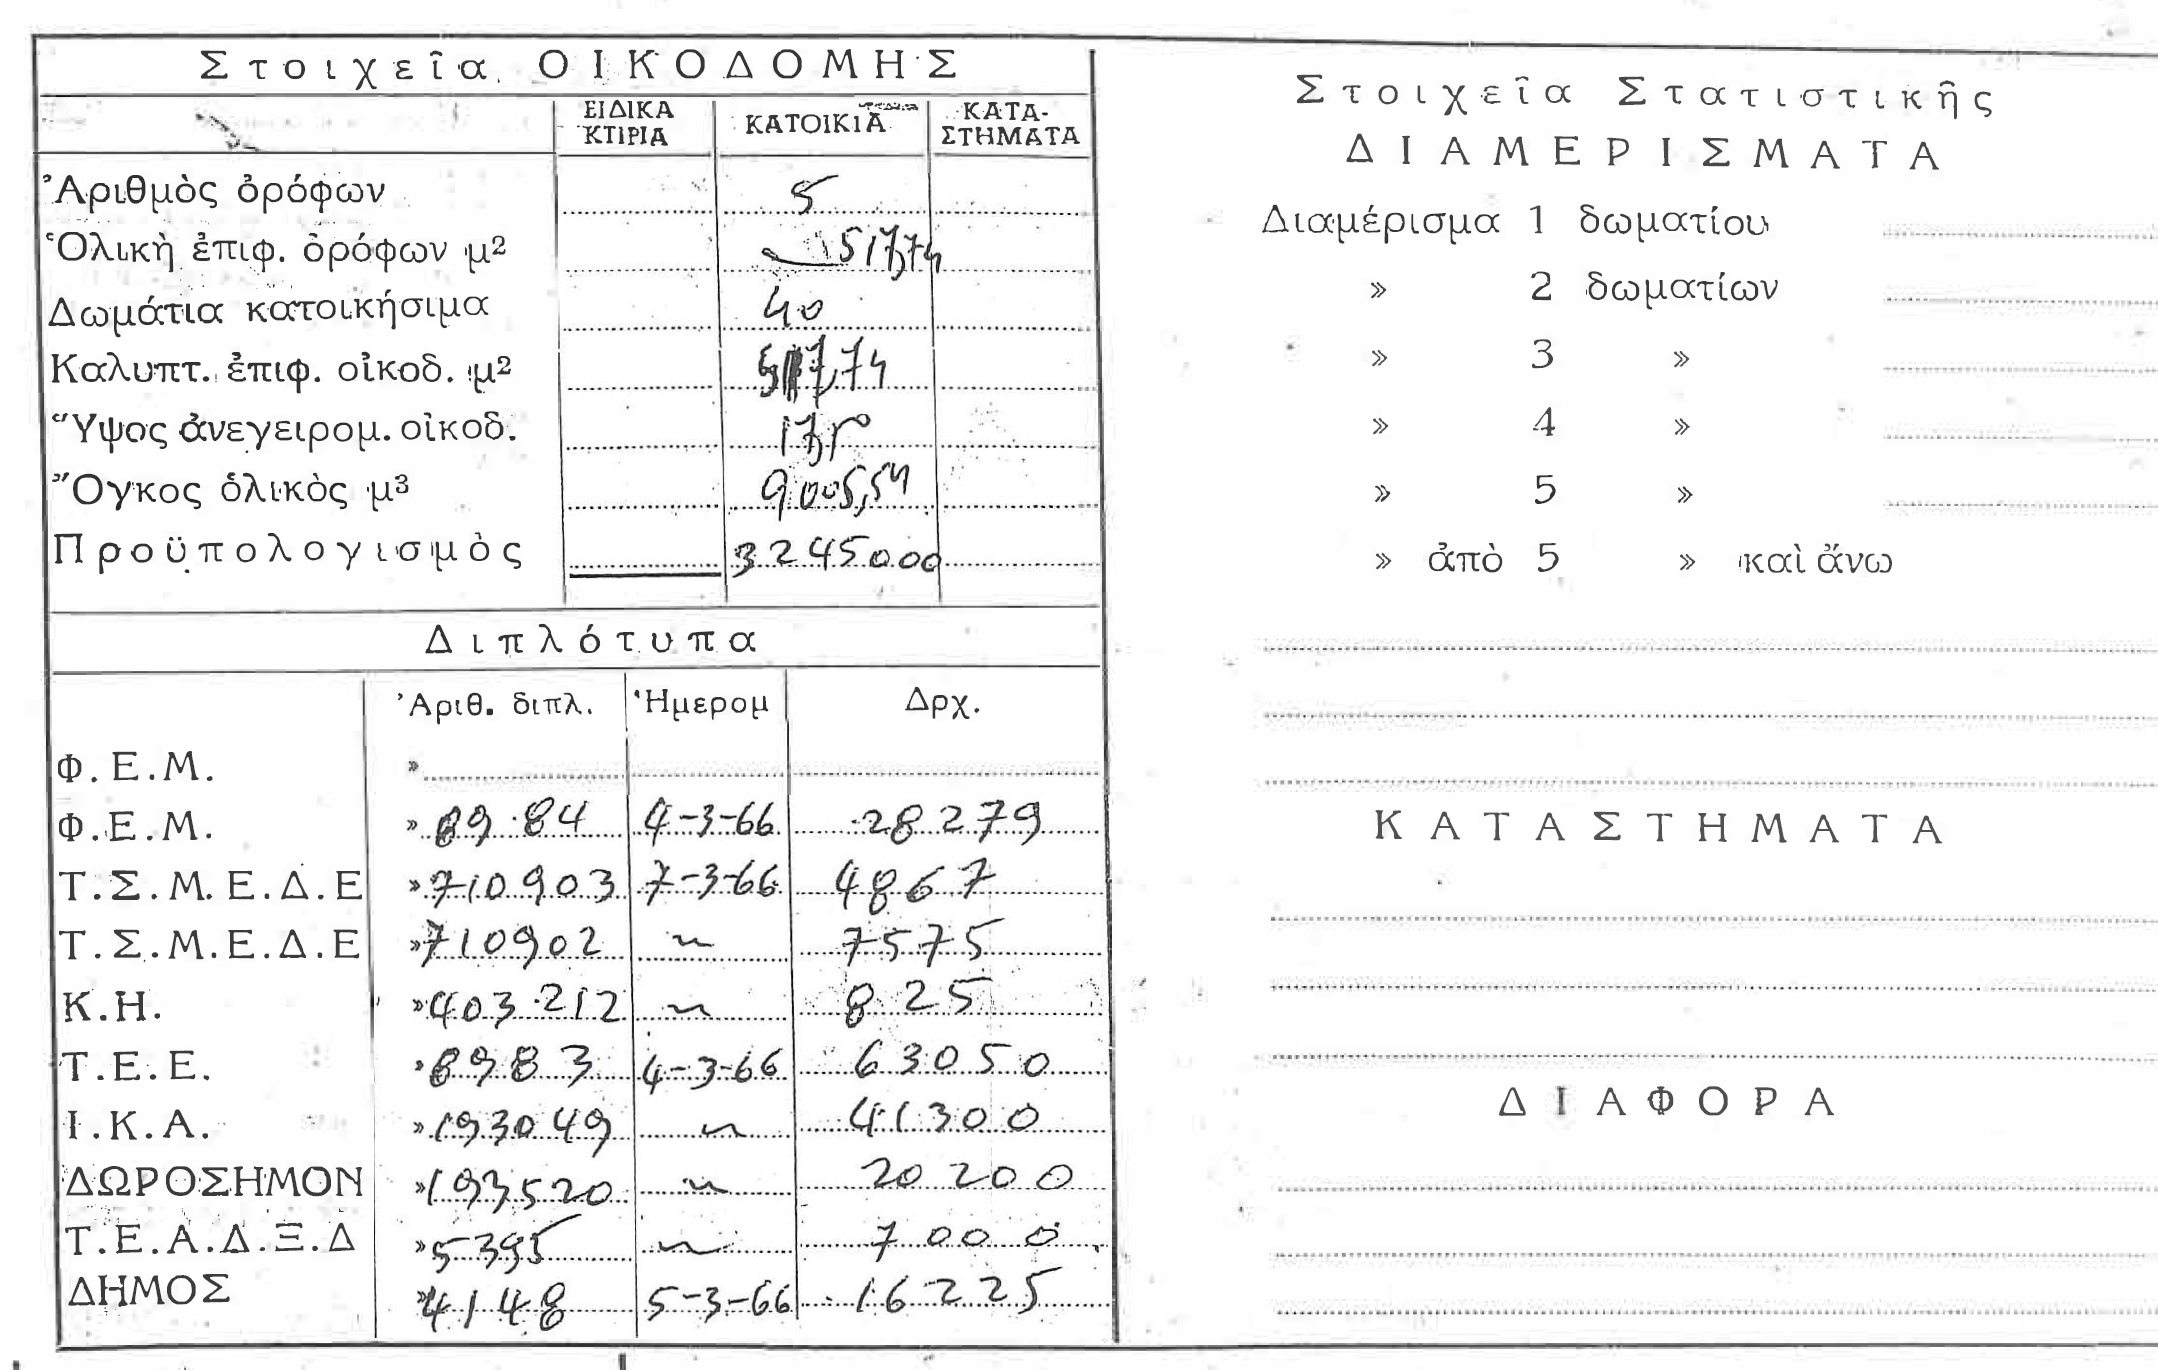 Στοιχεῖα ΟΙΚΟΔΟΜΗΣ
ΕΙΔΙΚΑ ΚΤΙΡΙΑ ΚΑΤΟΙΚΙΑ ΚΑΤΑ-ΣΤΗΜΑΤΑ
Ἀριθμὸς ὀρόφων 5
Ὁλικὴ ἐπιφ. ὀρόφων μ² 517,74
Δωμάτια κατοικήσιμα 40
Καλυπτ. ἐπιφ. οἰκοδ. μ² 517,74
Ὕψος ἀνεγειρομ. οἰκοδ.
Ὄγκος ὁλικὸς μ³ 9005,54
Προϋπολογισμὸς 3245000
Διπλότυπα
Ἀριθ. διπλ. Ἡμερομ Δρχ.
Φ.Ε.Μ. »
Φ.Ε.Μ. » 8984 4-3-66 28279
Τ.Σ.Μ.Ε.Δ.Ε » 710903 7-3-66 4867
Τ.Σ.Μ.Ε.Δ.Ε » 710902 〃 7575
Κ.Η. » 403212 〃 825
Τ.Ε.Ε. » 8983 4-3-66 63050
Ι.Κ.Α. » 193049 〃 41300
ΔΩΡΟΣΗΜΟΝ » 193520 〃 20200
Τ.Ε.Α.Δ.Ξ.Δ » 5395 〃 7000
ΔΗΜΟΣ » 4148 5-3-66 16225
Στοιχεῖα Στατιστικῆς
ΔΙΑΜΕΡΙΣΜΑΤΑ
Διαμέρισμα 1 δωματίου
» 2 δωματίων
» 3 »
» 4 »
» 5 »
» ἀπὸ 5 » καὶ ἄνω
ΚΑΤΑΣΤΗΜΑΤΑ
ΔΙΑΦΟΡΑ